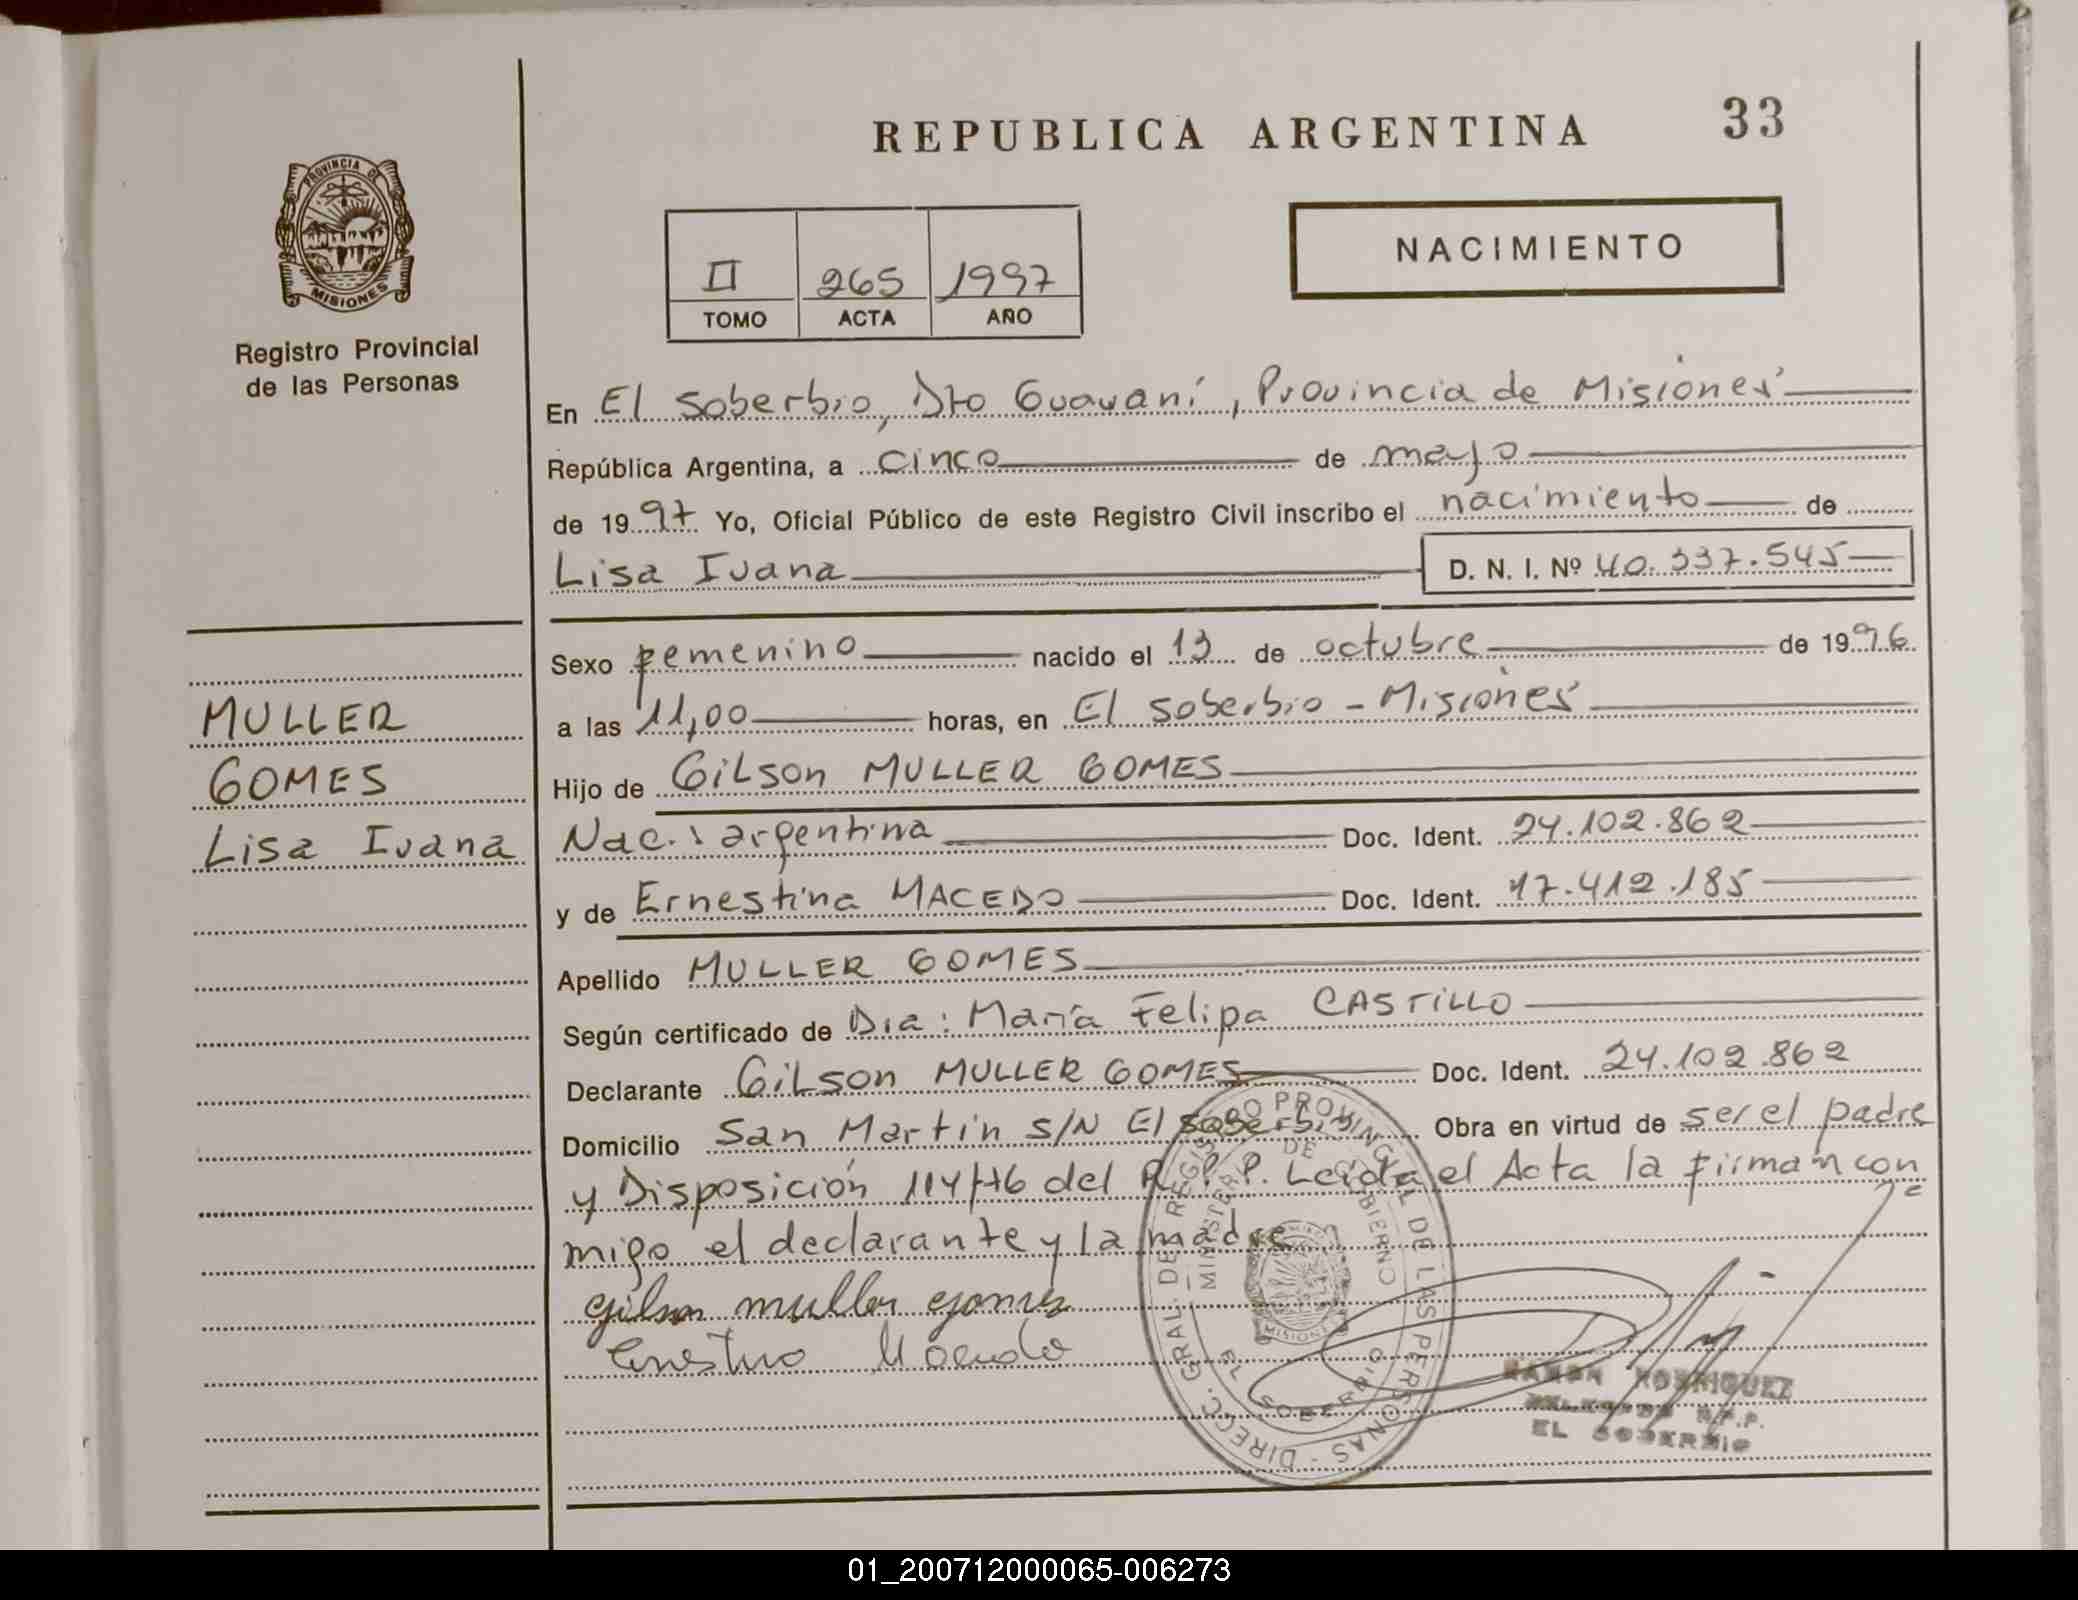 REPUBLICA ARGENTINA 33
PROVINCIA DE
MISIONES
Registro Provincial
de las Personas
NACIMIENTO
II 265 1997
TOMO ACTA AÑO
En El Soberbio, Dto Guaraní, Provincia de Misiones
República Argentina, a cinco de mayo
de 1997 Yo, Oficial Público de este Registro Civil inscribo el nacimiento de
Lisa Ivana D. N. I. Nº 40.337.545
Sexo femenino nacido el 13 de octubre de 1996
a las 11,00 horas, en El Soberbio - Misiones
Hijo de Gilson MULLER GOMES
Nac.: argentina Doc. Ident. 24.102.862
y de Ernestina MACEDO Doc. Ident. 17.412.185
Apellido MULLER GOMES
Según certificado de Dra: María Felipa CASTILLO
Declarante Gilson MULLER GOMES Doc. Ident. 24.102.862
Domicilio San Martin s/N El Soberbio Obra en virtud de ser el padre
y Disposición 114/76 del R.P.P. Leida el Acta la firman con
migo el declarante y la madre
gilson muller gomes
MULLER
GOMES
Lisa Ivana
DIRECC. GRAL. DEL REGISTRO PROVINCIAL DE LAS PERSONAS
MINISTERIO DE GOBIERNO
MISIONES
EL SOBERBIO
RAMON RODRIGUEZ
DELEGADO R.P.P.
EL SOBERBIO
01_200712000065-006273